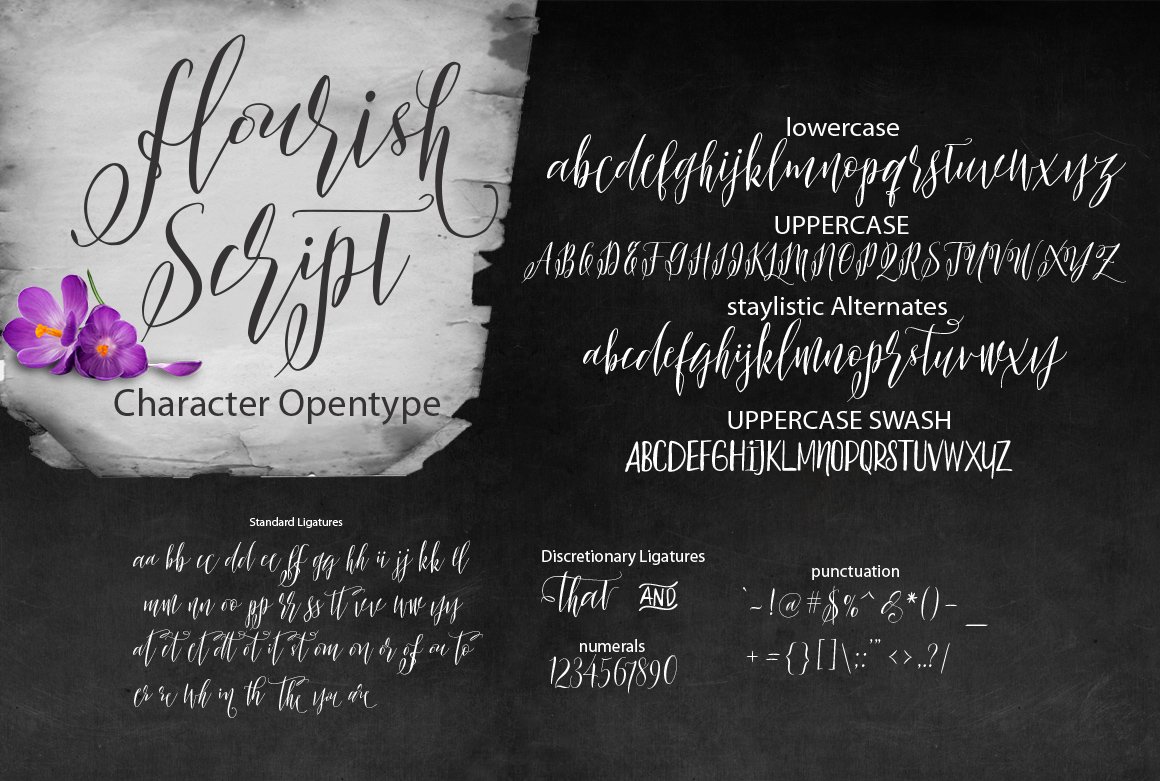 flourish
Script
Character Opentype
lowercase
abcdefghijklmnopqrstuvwxyz
UPPERCASE
ABCDEFGHIJKLMNOPQRSTUVWXYZ
staylistic Alternates
abcdefghijklmnoprstuvwxy
UPPERCASE SWASH
ABCDEFGHIJKLMNOPQRSTUVWXYZ
Standard Ligatures
aa bb cc dd ee ff gg hh ii jj kk ll
mm nn oo pp rr ss tt vv ww yy
at et el dt ot it st om on or of ou to
er re wh in th the you are
Discretionary Ligatures
that AND
numerals
1234567890
punctuation
`~!@#$%^&*()-_
+={}[]\;:'"<>,.?/